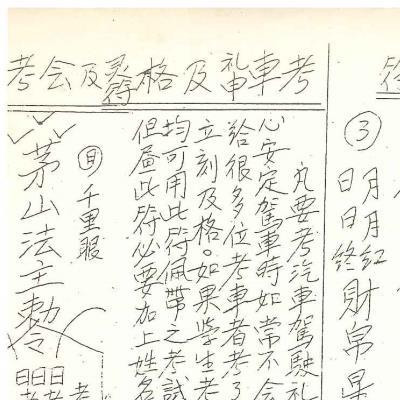 考車神及格灵符及会考
③
月月红
日日终財帛
丸要考汽車駕駛礼
心安定駕車時如常不会
給很多位考車者考了
立刻及格。如果学生考
均可用此符佩帶之考試
但屬此符必要加上姓名
目 千里眼
茅山法主敕令
日日日